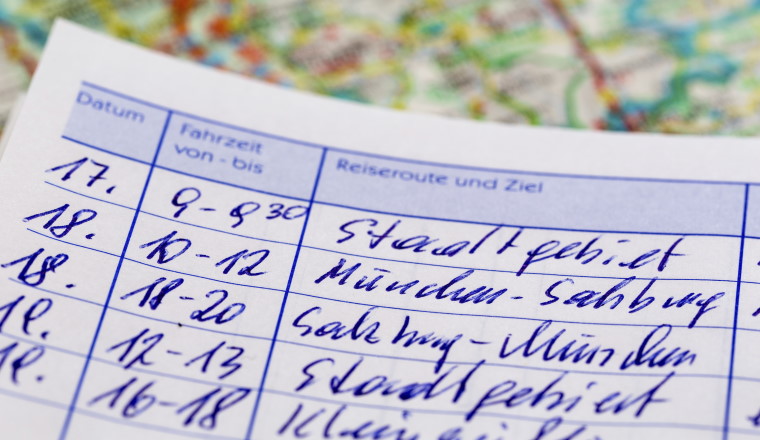 Datum Fahrzeit von - bis Reiseroute und Ziel
17. 9 - 9 30 Stadtgebiet
18. 10 - 12 München - Salzburg
18. 18 - 20 Salzburg - München
19. 12 - 13 Stadtgebiet
19. 16 - 18